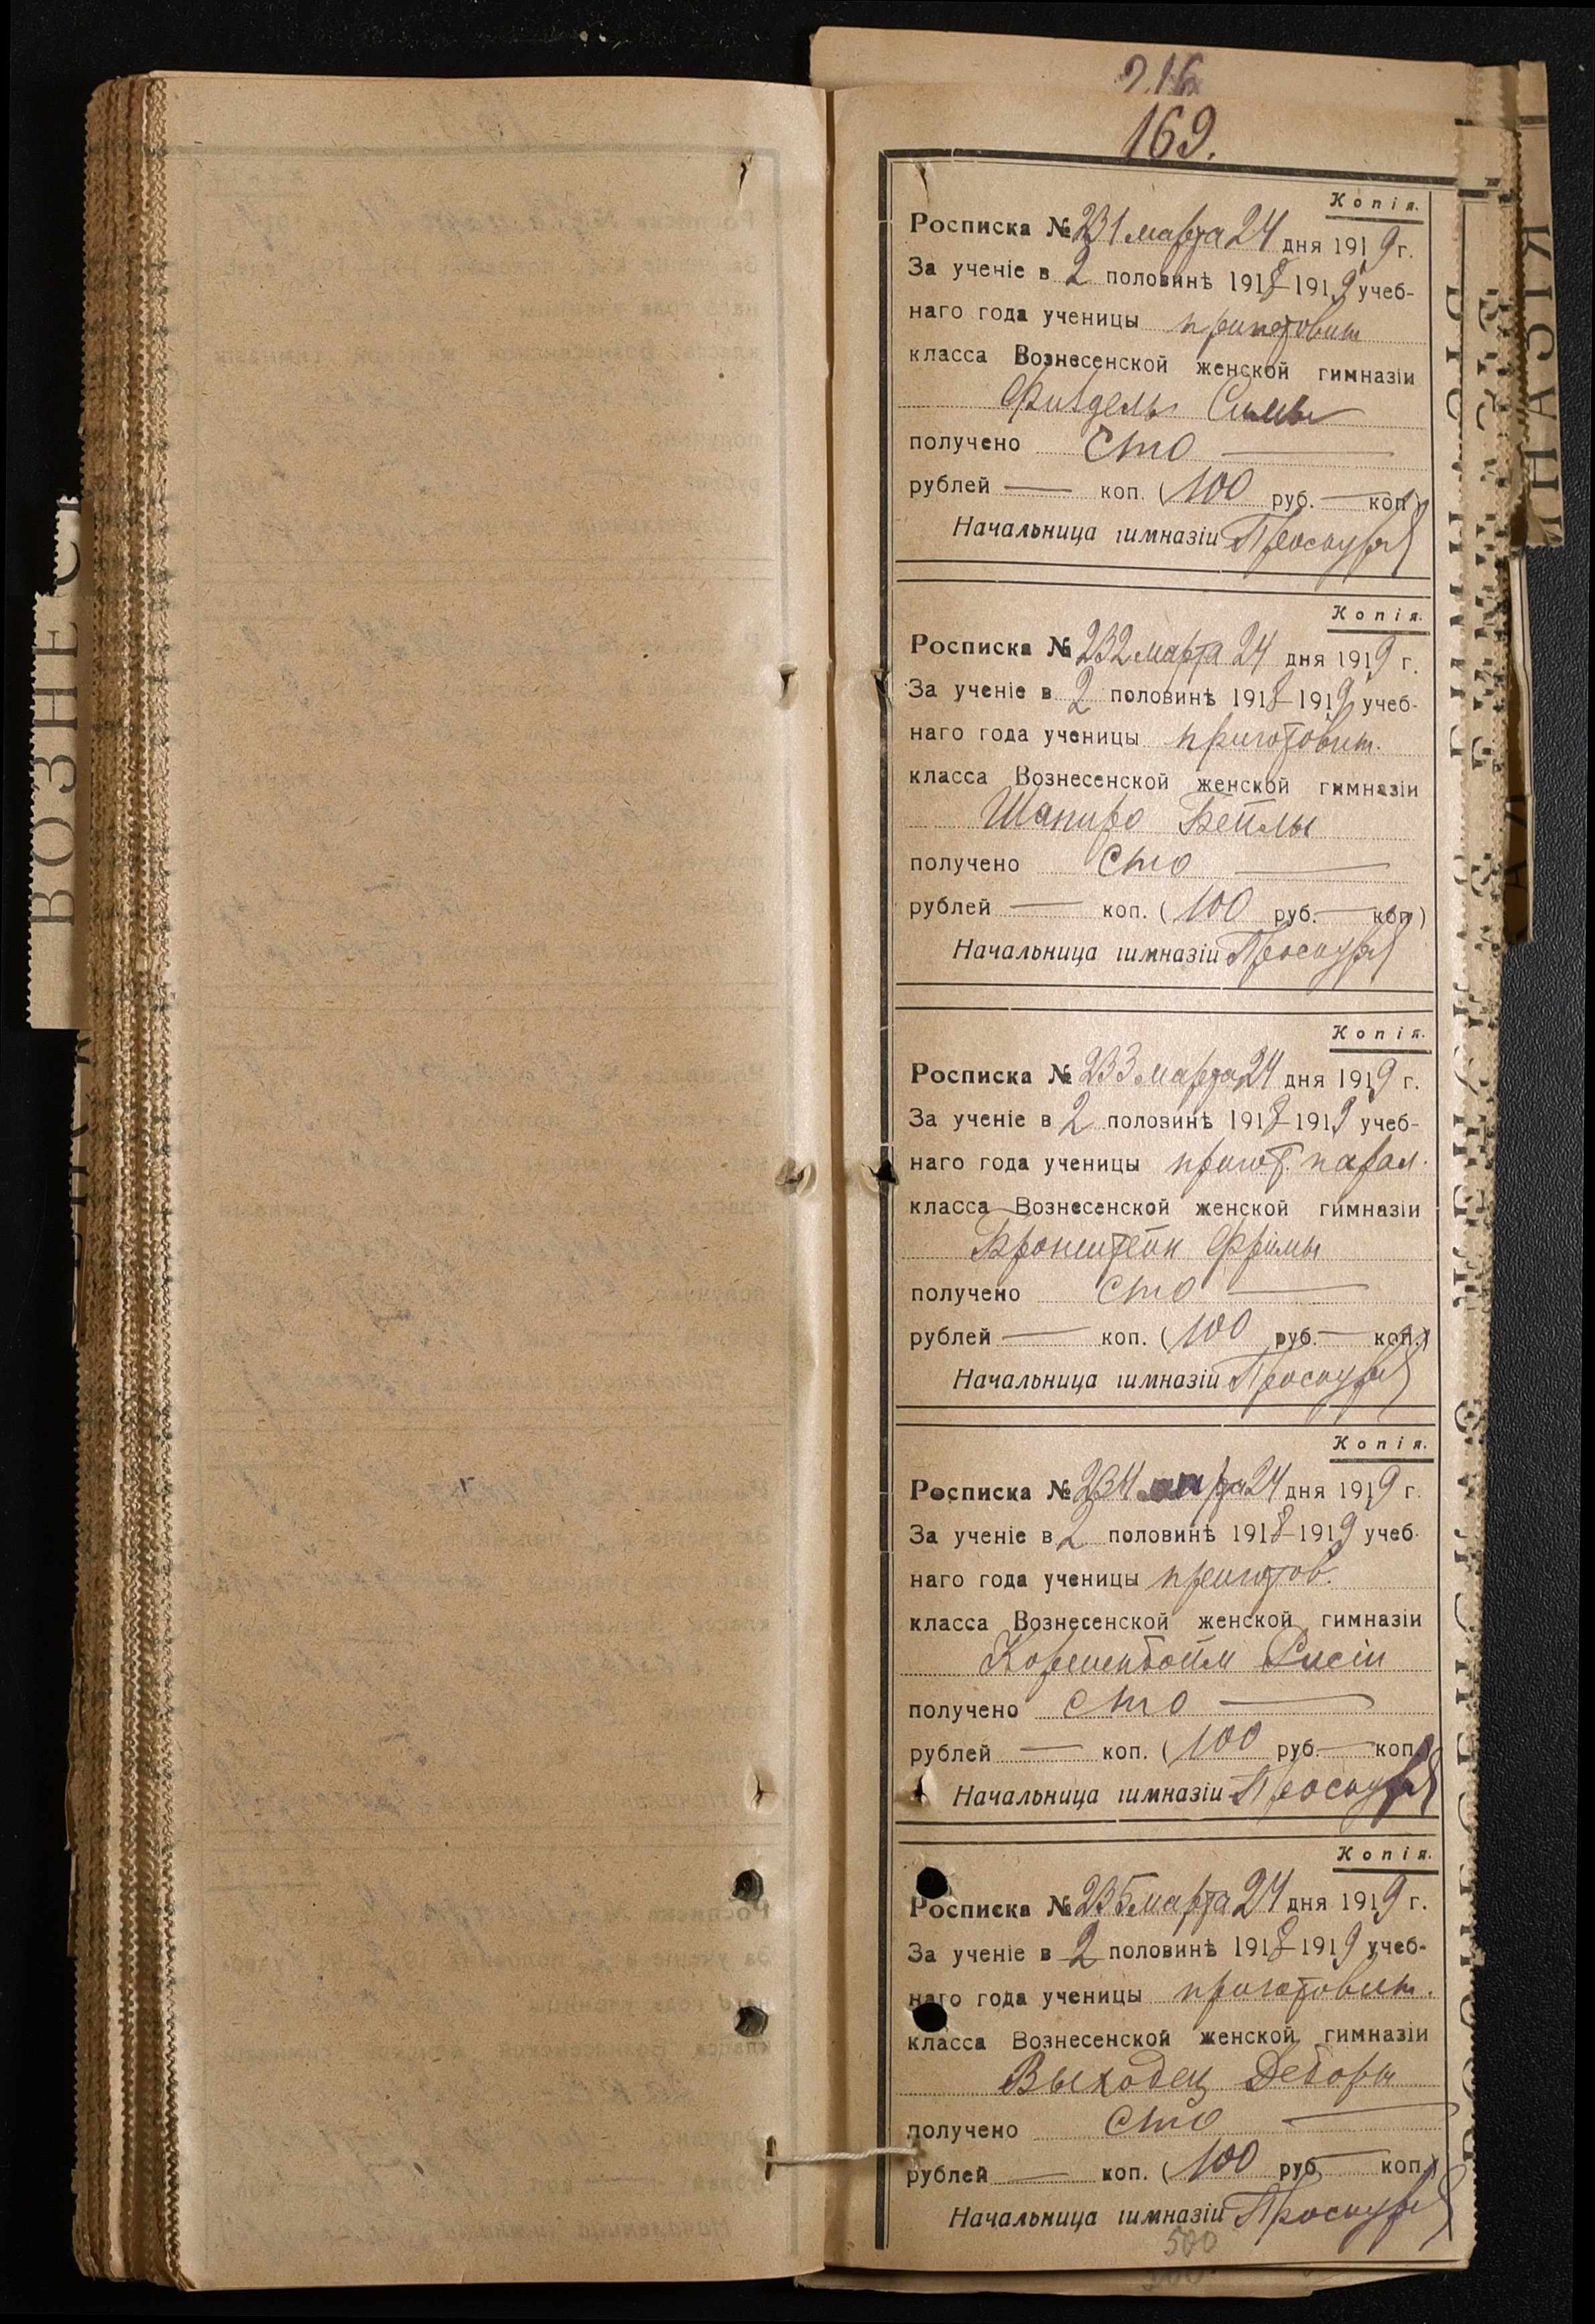 216
169.
Копія.
Росписка № 231 марта 24 дня 1919 г.
За ученіе в 2 половинѣ 1918-1919 учеб-
наго года ученицы приготовит
класса Вознесенской женской гимназіи
Физдель Симы
получено сто
рублей — коп. (100 руб. — коп.)
Начальница гимназіи
Копія.
Росписка № 232 марта 24 дня 1919 г.
За ученіе в 2 половинѣ 1918-1919 учеб-
наго года ученицы приготовит.
класса Вознесенской женской гимназіи
Шапиро Бейлы
получено сто
рублей — коп. (100 руб. — коп)
Начальница гимназіи
Копія.
Росписка № 233 марта 24 дня 1919 г.
За ученіе в 2 половинѣ 1918-1919 учеб-
наго года ученицы пригот. парал.
класса Вознесенской женской гимназіи
Бронштейн Фримы
получено сто
рублей — коп. (100 руб. — коп.)
Начальница гимназіи
Копія.
Росписка № 234 марта 24 дня 1919 г.
За ученіе в 2 половинѣ 1918-1919 учеб-
наго года ученицы приготов.
класса Вознесенской женской гимназіи
получено сто
рублей — коп. (100 руб. — коп.)
Начальница гимназіи
Копія.
Росписка № 235 марта 24 дня 1919 г.
За ученіе в 2 половинѣ 1918-1919 учеб-
наго года ученицы приготовит.
класса Вознесенской женской гимназіи
Выходец Деборы
получено сто
рублей — коп. (100 руб. — коп.)
Начальница гимназіи
500
ВОЗНЕС